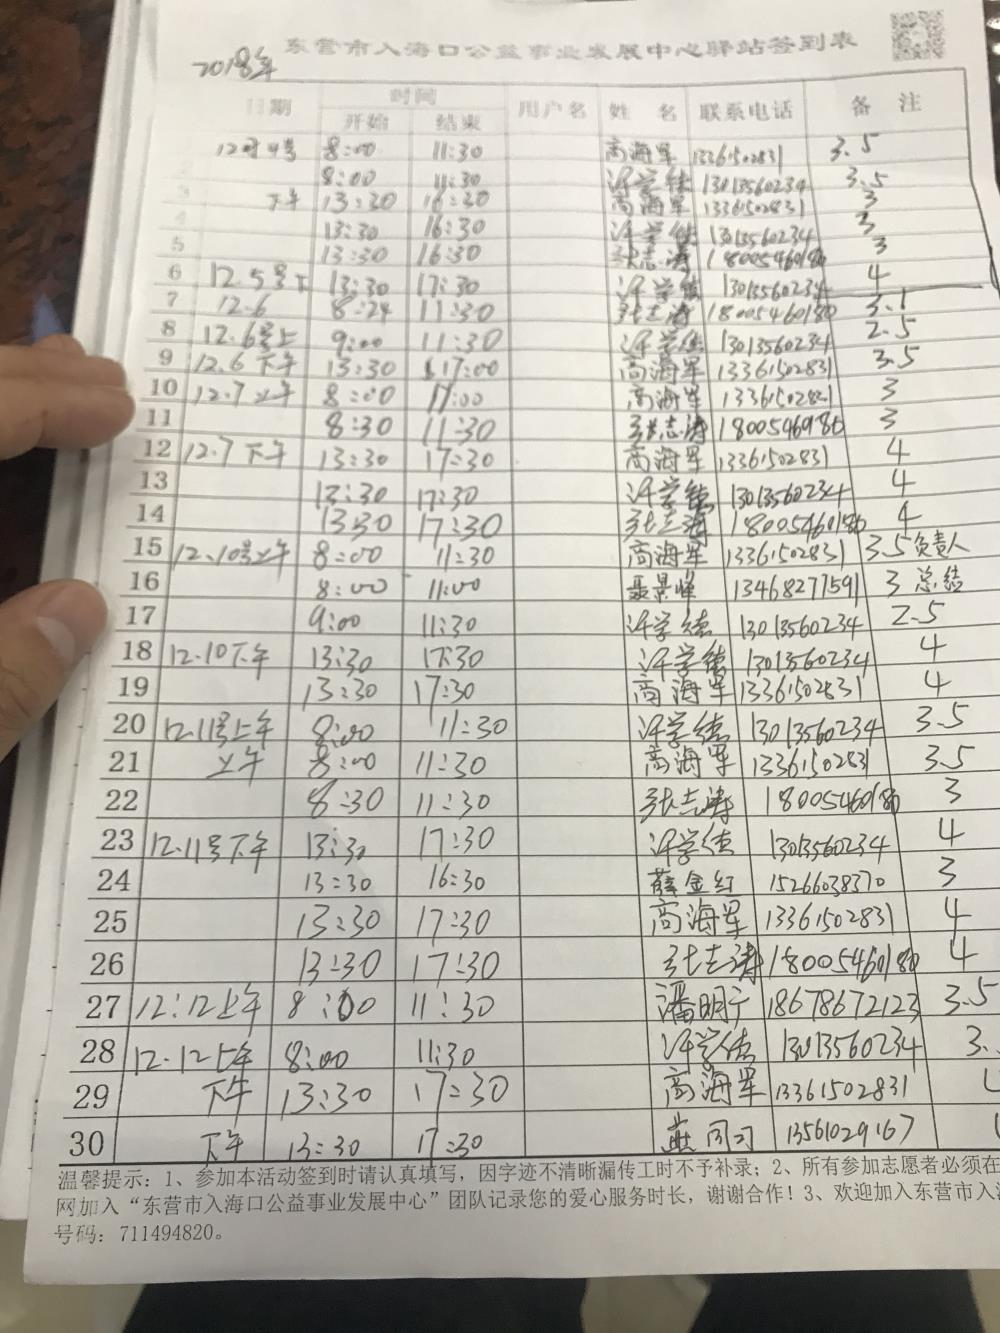 东营市入海口公益事业发展中心驿站签到表
2018年
日期 时间 用户名 姓名 联系电话 备注
开始 结束
12月4号 8:00 11:30 高海军 13361502831 3.5
2 8:00 11:30 许学德 13013560234 3.5
3 下午 13:30 16:30 高海军 13361502831 3
4 13:30 16:30 许学德 13013560234 3
5 13:30 16:30 张志涛 18005460186 3
6 12.5号下 13:30 17:30 许学德 13013560234 4
7 12.6 8:24 11:30 张志涛 18005460186 3.1
8 12.6号上 9:00 11:30 许学德 13013560234 2.5
9 12.6下午 13:30 17:00 高海军 13361502831 3.5
10 12.7上午 8:00 11:00 高海军 13361502831 3
11 8:30 11:30 张志涛 18005460186 3
12 12.7下午 13:30 17:30 高海军 13361502831 4
13 13:30 17:30 许学德 13013560234 4
14 13:30 17:30 张志涛 18005460186 4
15 12.10号上午 8:00 11:30 高海军 13361502831 3.5负责人
16 8:00 11:00 聂景峰 13468277591 3 总结
17 9:00 11:30 许学德 13013560234 2.5
18 12.10下午 13:30 17:30 许学德 13013560234 4
19 13:30 17:30 高海军 13361502831 4
20 12.11号上午 8:00 11:30 许学德 13013560234 3.5
21 上午 8:00 11:30 高海军 13361502831 3.5
22 8:30 11:30 张志涛 18005460186 3
23 12.11号下午 13:30 17:30 许学德 13013560234 4
24 13:30 16:30 薛金红 15266038370 3
25 13:30 17:30 高海军 13361502831 4
26 13:30 17:30 张志涛 18005460186 4
27 12:12上午 8:00 11:30 潘明宁 18678672123 3.5
28 12.12上午 8:00 11:30 许学德 13013560234 3.
29 下午 13:30 17:30 高海军 13361502831
30 下午 13:30 17:30 13561029167
温馨提示：1、参加本活动签到时请认真填写，因字迹不清晰漏传工时不予补录；2、所有参加志愿者必须在
网加入“东营市入海口公益事业发展中心”团队记录您的爱心服务时长，谢谢合作！3、欢迎加入东营市入海
号码：711494820。